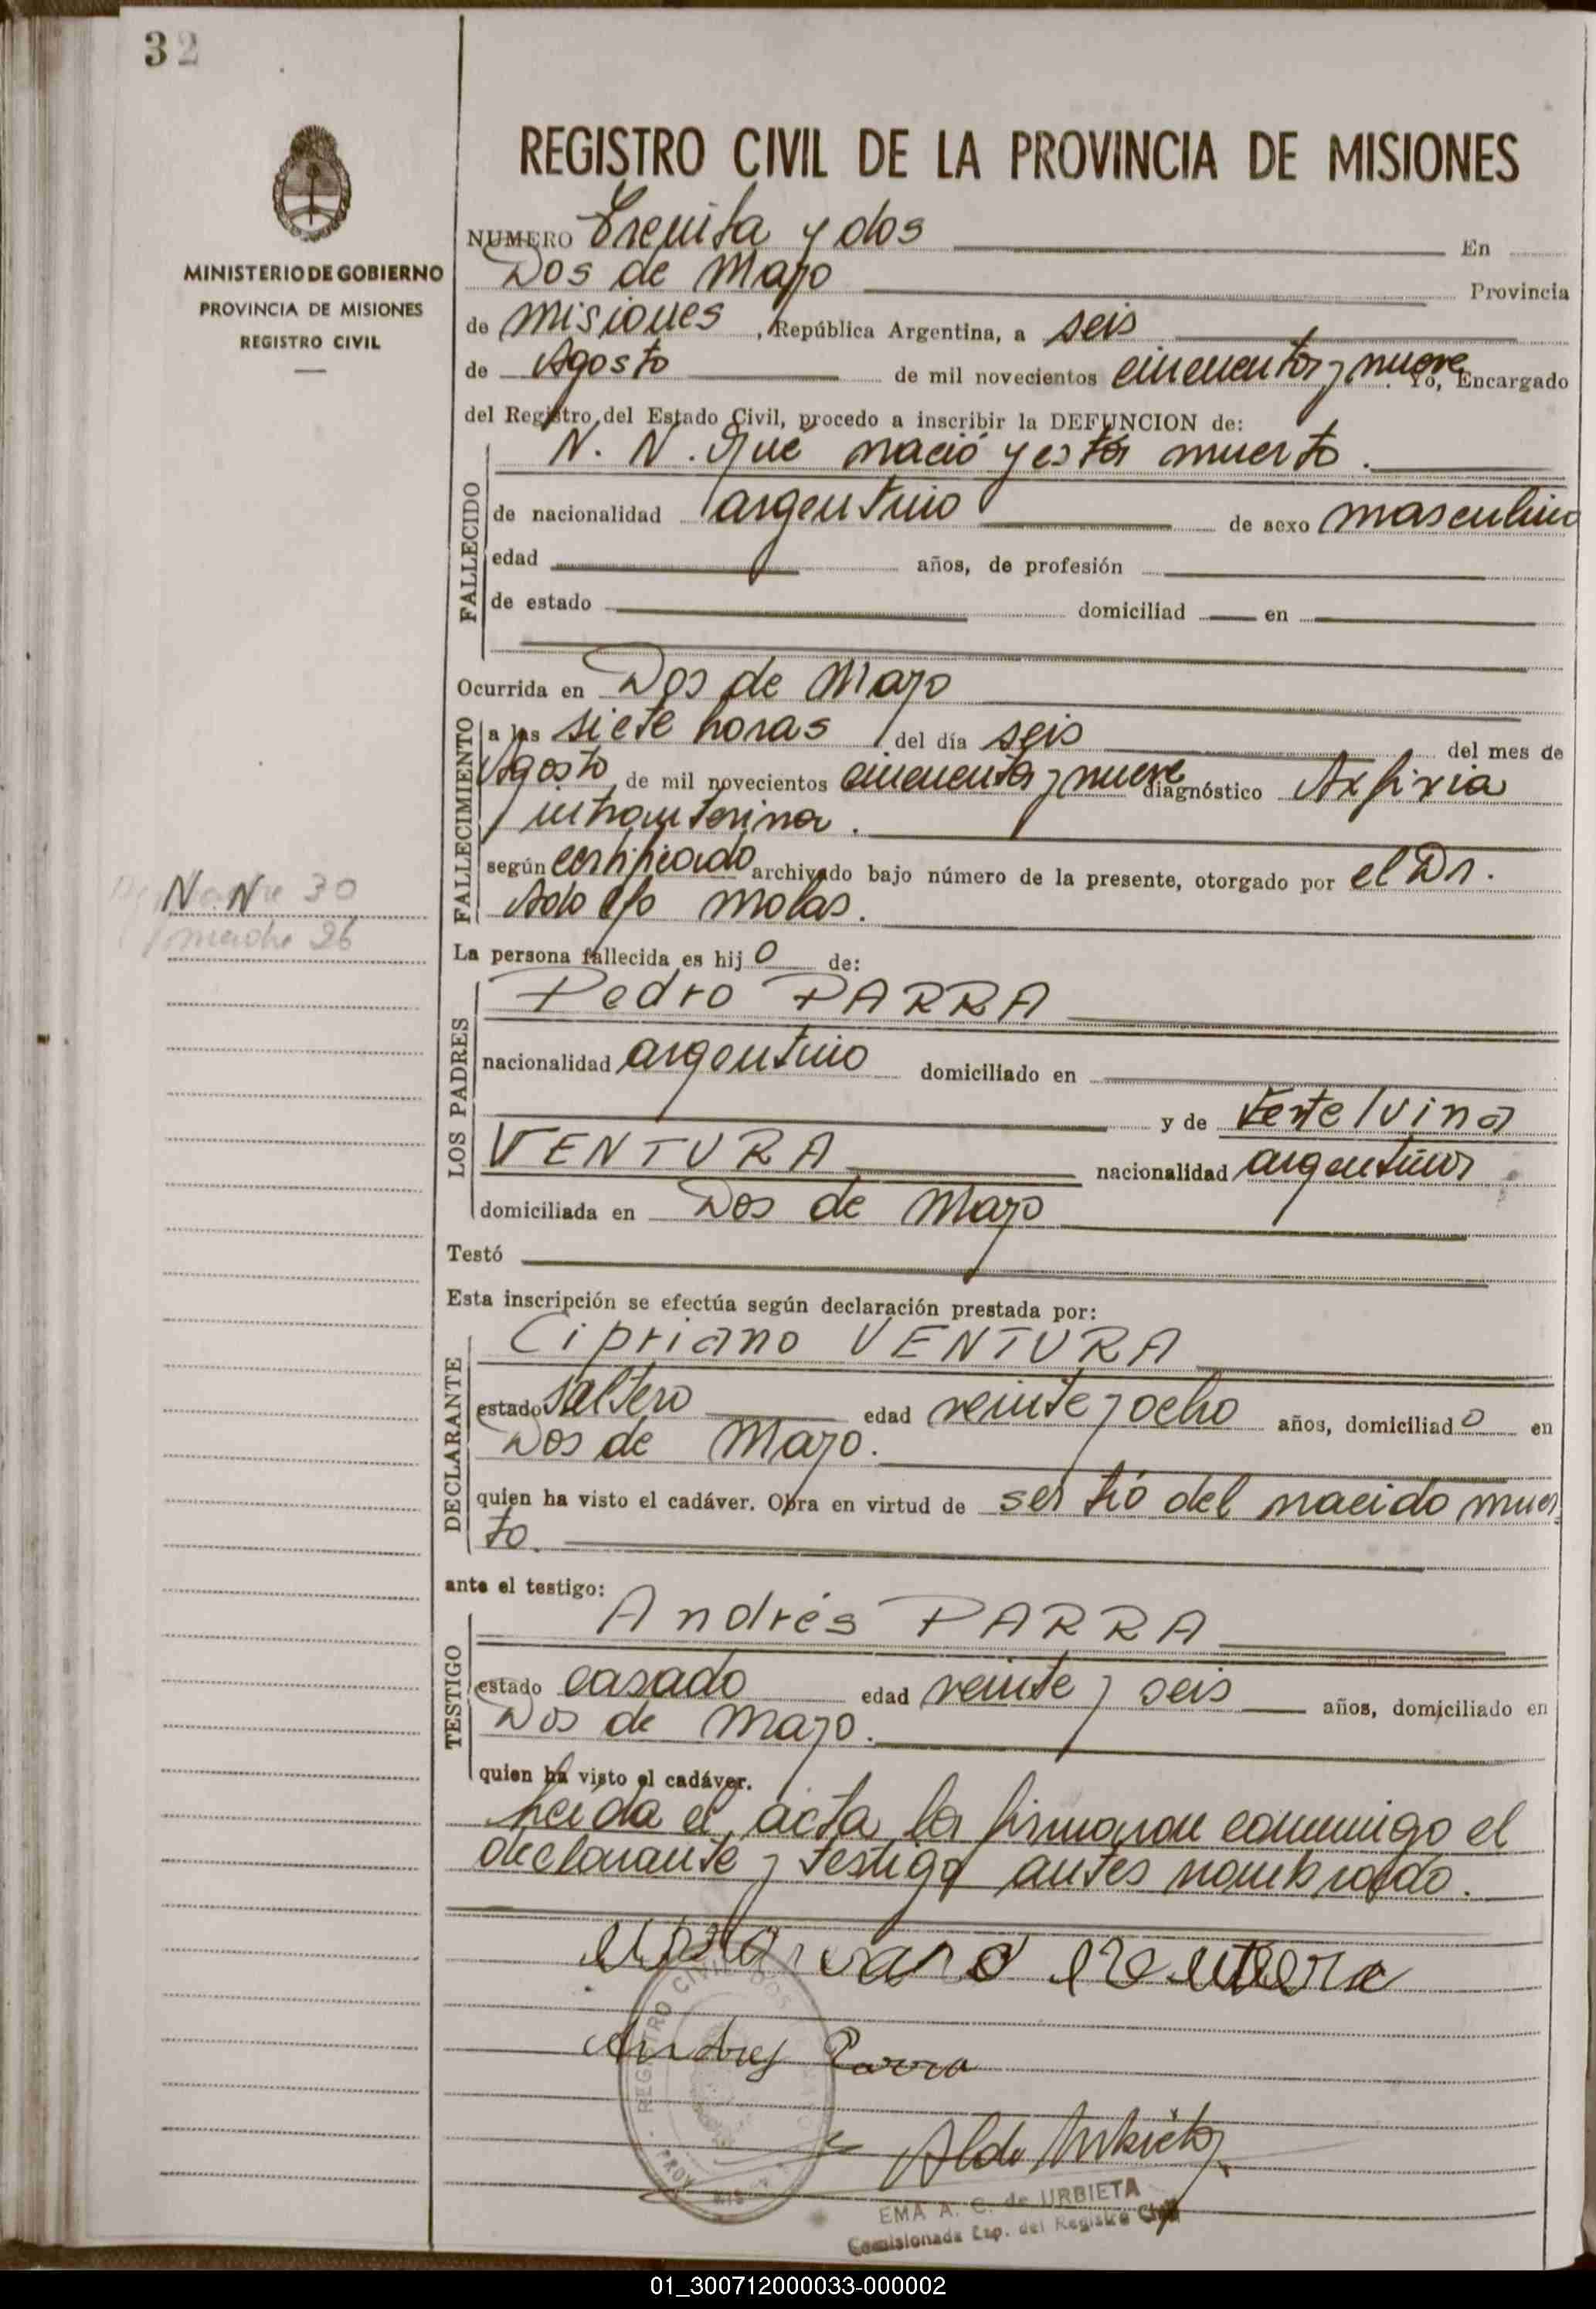 32
MINISTERIO DE GOBIERNO
PROVINCIA DE MISIONES
REGISTRO CIVIL
REGISTRO CIVIL DE LA PROVINCIA DE MISIONES
NUMERO Treinta y dos En
Dos de Mayo Provincia
de Misiones, República Argentina, a seis
de Agosto de mil novecientos cincuenta y nueve. Yo, Encargado
del Registro del Estado Civil, procedo a inscribir la DEFUNCION de:
N. N. que nació y está muerto.
FALLECIDO
de nacionalidad argentino de sexo masculino
edad años, de profesión
de estado domiciliad en
Ocurrida en Dos de Mayo
FALLECIMIENTO
a las siete horas del día seis del mes de
Agosto de mil novecientos cincuenta y nueve diagnóstico Axfixia
intrauterina.
según certificado archivado bajo número de la presente, otorgado por el Dr.
Adolfo Molas.
N. N. 30
madre 26
La persona fallecida es hijo de:
LOS PADRES
Pedro PARRA
nacionalidad argentino domiciliado en
y de
VENTURA nacionalidad argentina
domiciliada en Dos de Mayo
Testó
Esta inscripción se efectúa según declaración prestada por:
DECLARANTE
Cipriano VENTURA
estado soltero edad veinte y ocho años, domiciliado en
Dos de Mayo.
quien ha visto el cadáver. Obra en virtud de ser tió del nacido muer
to.
ante el testigo:
TESTIGO
Andrés PARRA
estado casado edad veinte y seis años, domiciliado en
Dos de Mayo.
quien ha visto el cadáver.
Leída el acta la firmaron conmigo el
declarante y testigo antes nombrado.
Andres Parra
REGISTRO CIVIL DOS
EMA A. C. de URBIETA
Comisionada Esp. del Registro Civil
01_300712000033-000002